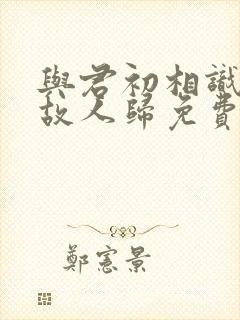 與君初相識
故人歸免費
鄭憲景